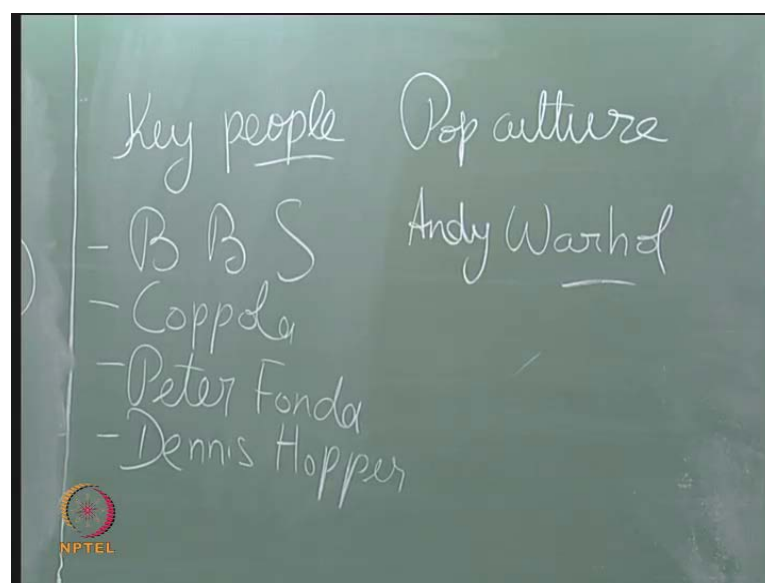 Key people
- B B S
- Coppola
- Peter Fonda
- Dennis Hopper
Pop culture
Andy Warhol
NPTEL